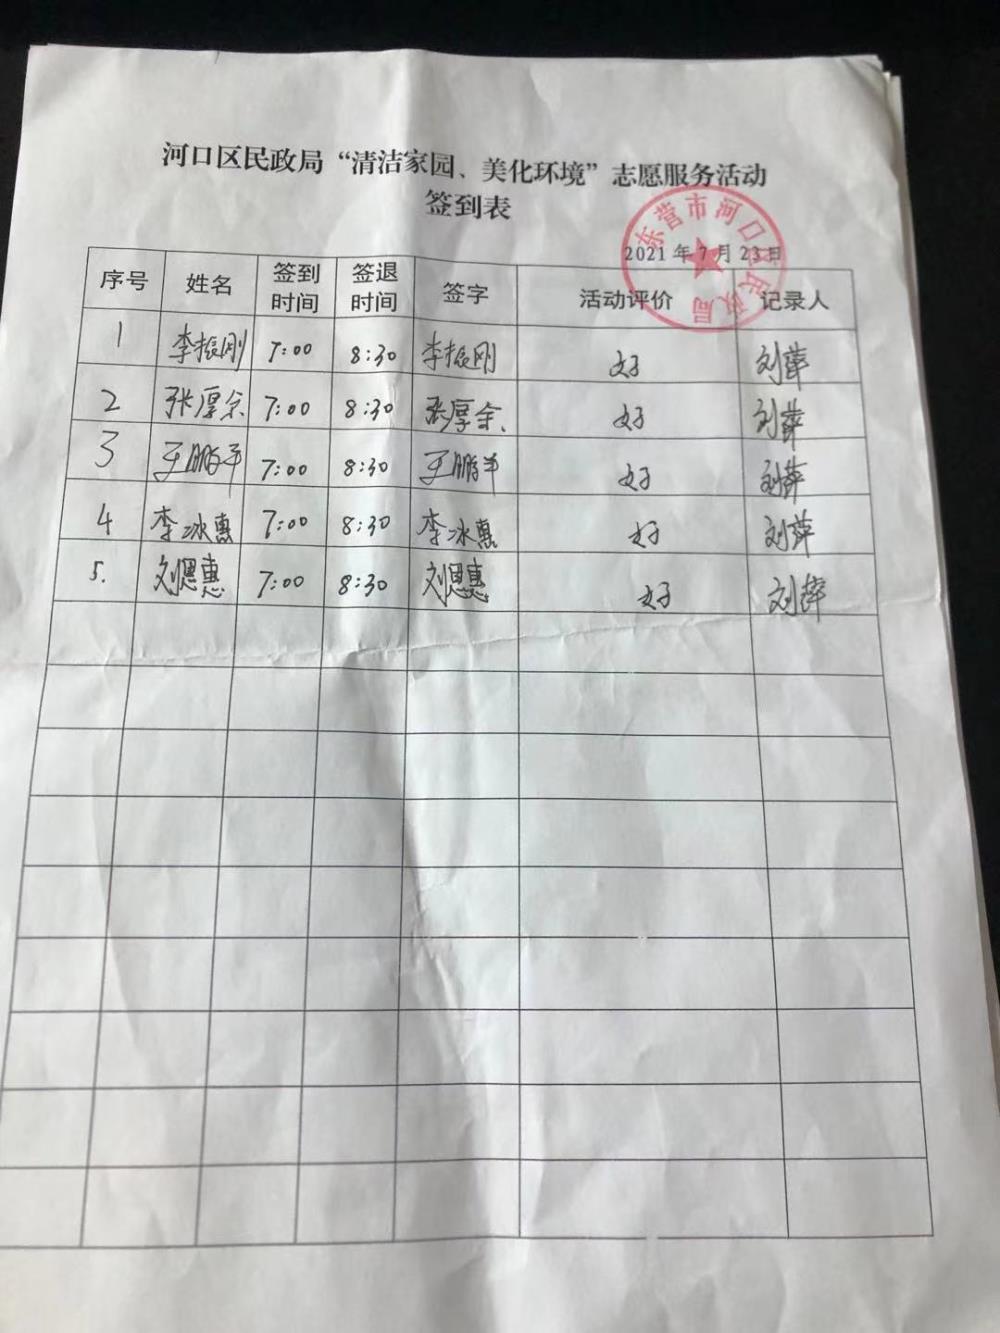 河口区民政局“清洁家园、美化环境”志愿服务活动
签到表
东营市河口区民政局
2021年7月23日
序号 姓名 签到时间 签退时间 签字 活动评价 记录人
1 李振刚 7:00 8:30 李振刚 好 刘萍
2 张厚余 7:00 8:30 张厚余 好 刘萍
3 王鹏羊 7:00 8:30 王鹏羊 好 刘萍
4 李冰惠 7:00 8:30 李冰惠 好 刘萍
5. 刘恩惠 7:00 8:30 刘恩惠 好 刘萍